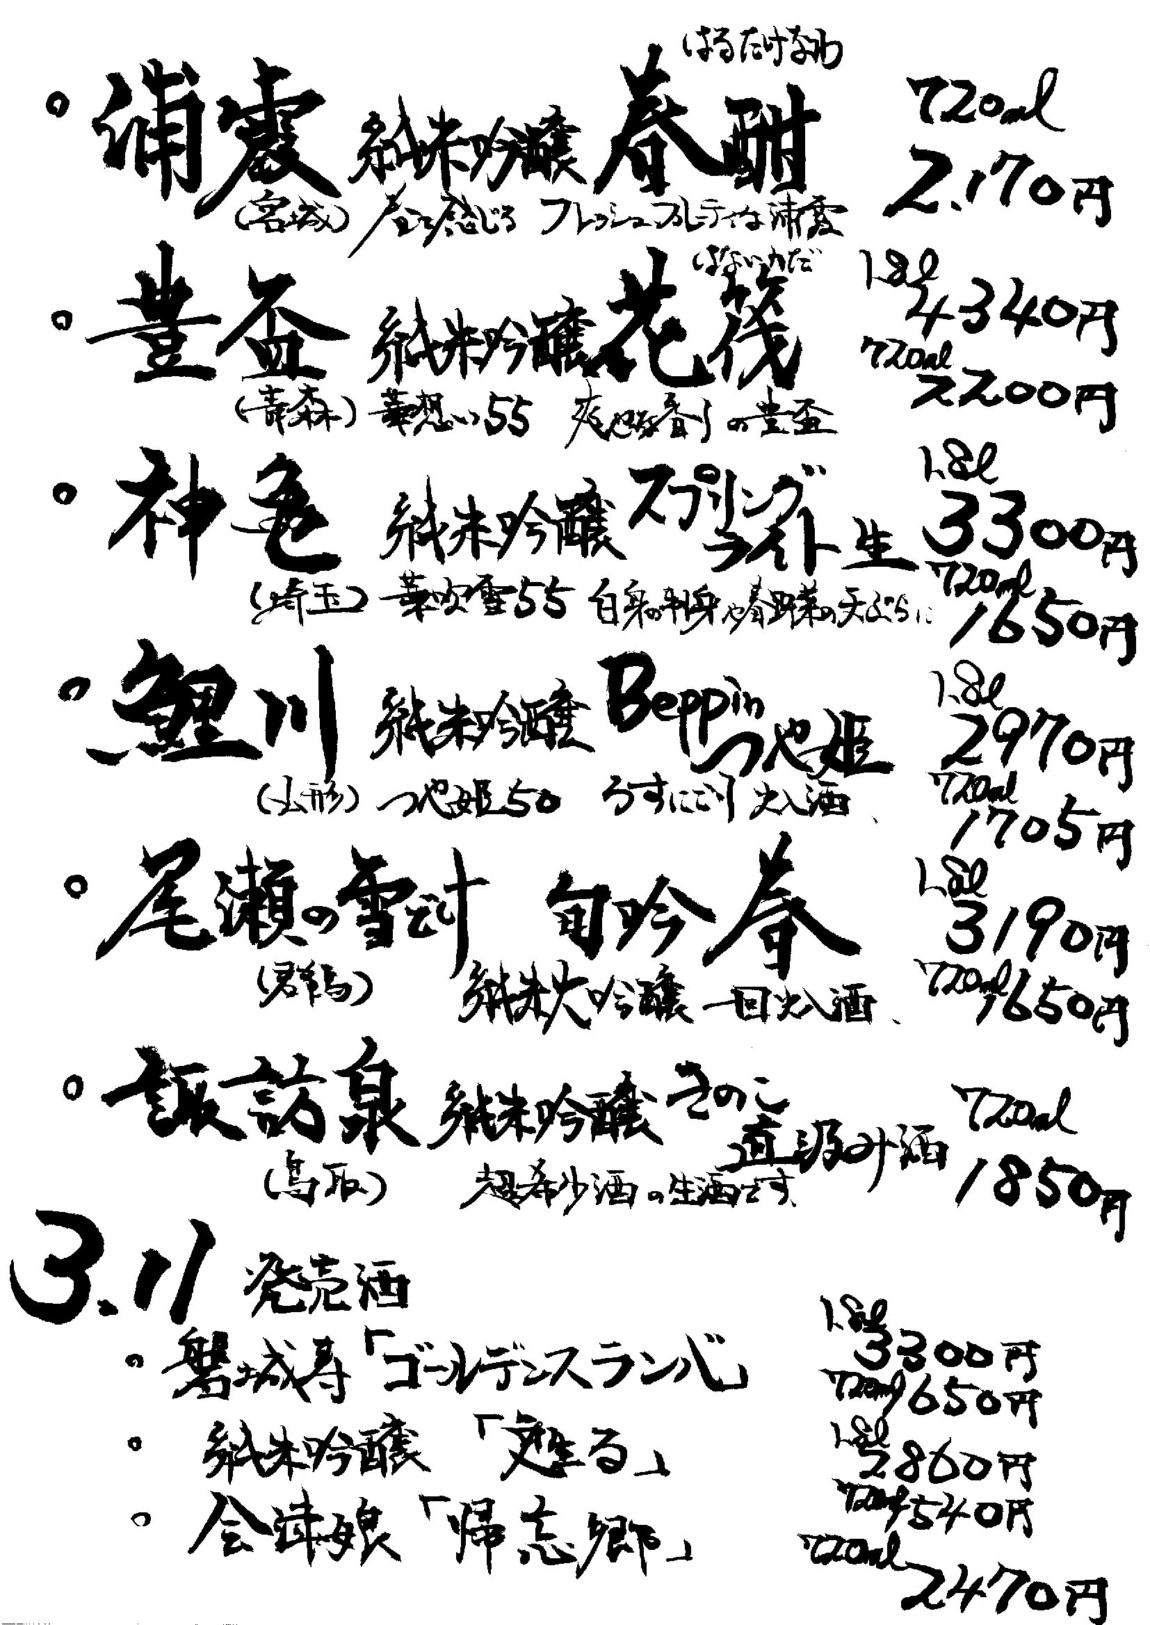 はるたけなわ
。浦霞 純米吟醸 春酣 720ml 2.170円
(宮城) 春を感じる フレッシュフルーティな浦霞
はないかだ
。豊盃 純米吟醸 花筏 1.8l 4340円
720ml 2200円
(青森) 華想い55 爽やかな香りの豊盃
。神亀 純米吟醸 スプリングライト 生 1.8l 3300円
720ml 1650円
(埼玉) 華吹雪55 白身の刺身や春野菜の天ぷらに
。鯉川 純米吟醸 Beppin つや姫 1.8l 2970円
(山形) つや姫50 うすにごり 火入酒、 720ml 1705円
。尾瀬の雪どけ 旬吟 春 1.8l 3190円
(群馬) 純米大吟醸 一回火入酒、 720ml 1650円
。諏訪泉 純米吟醸 きのこ 直汲み酒 720ml 1850円
(鳥取) 超希少酒の生酒です、
3.11 発売酒
。磐城寿「ゴールデンスランバ」 1.8l 3300円
720ml 1650円
。純米吟醸 「甦る」 1.8l 2860円
720ml 1540円
。会津娘「帰忘郷」 720ml 2470円